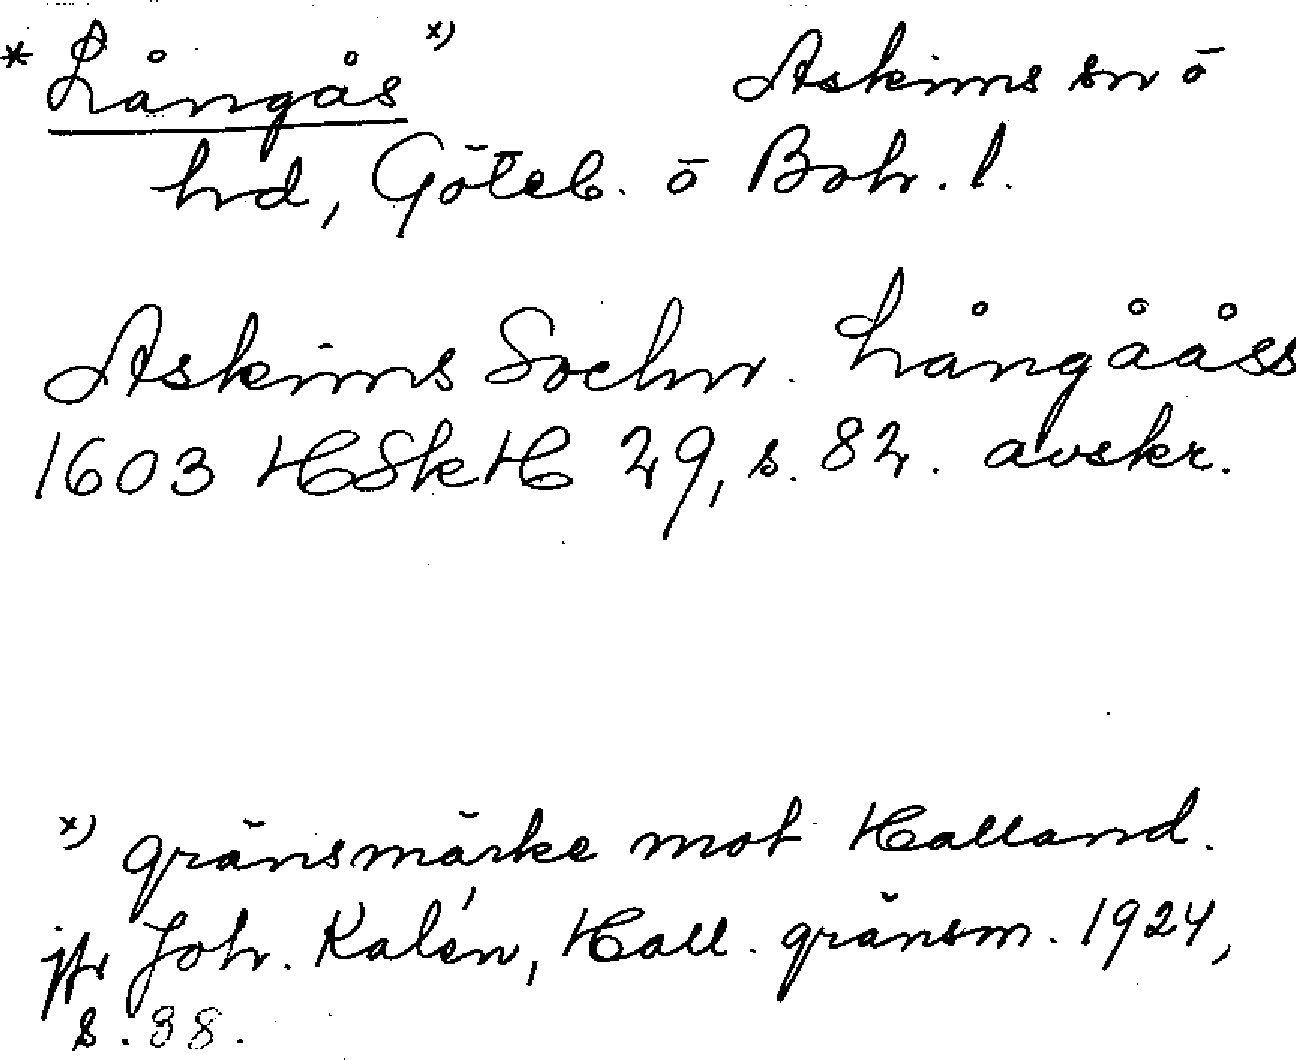 * Långås x) Askims sn ö
hd, Göteb. ö Boh. l.
Askims Sochn. Långååss
1603 HSkH 29, s. 82. avskr.
x) gränsmärke mot Halland.
jfr Joh. Kalén, Hall. gränsm. 1924,
s. 38.